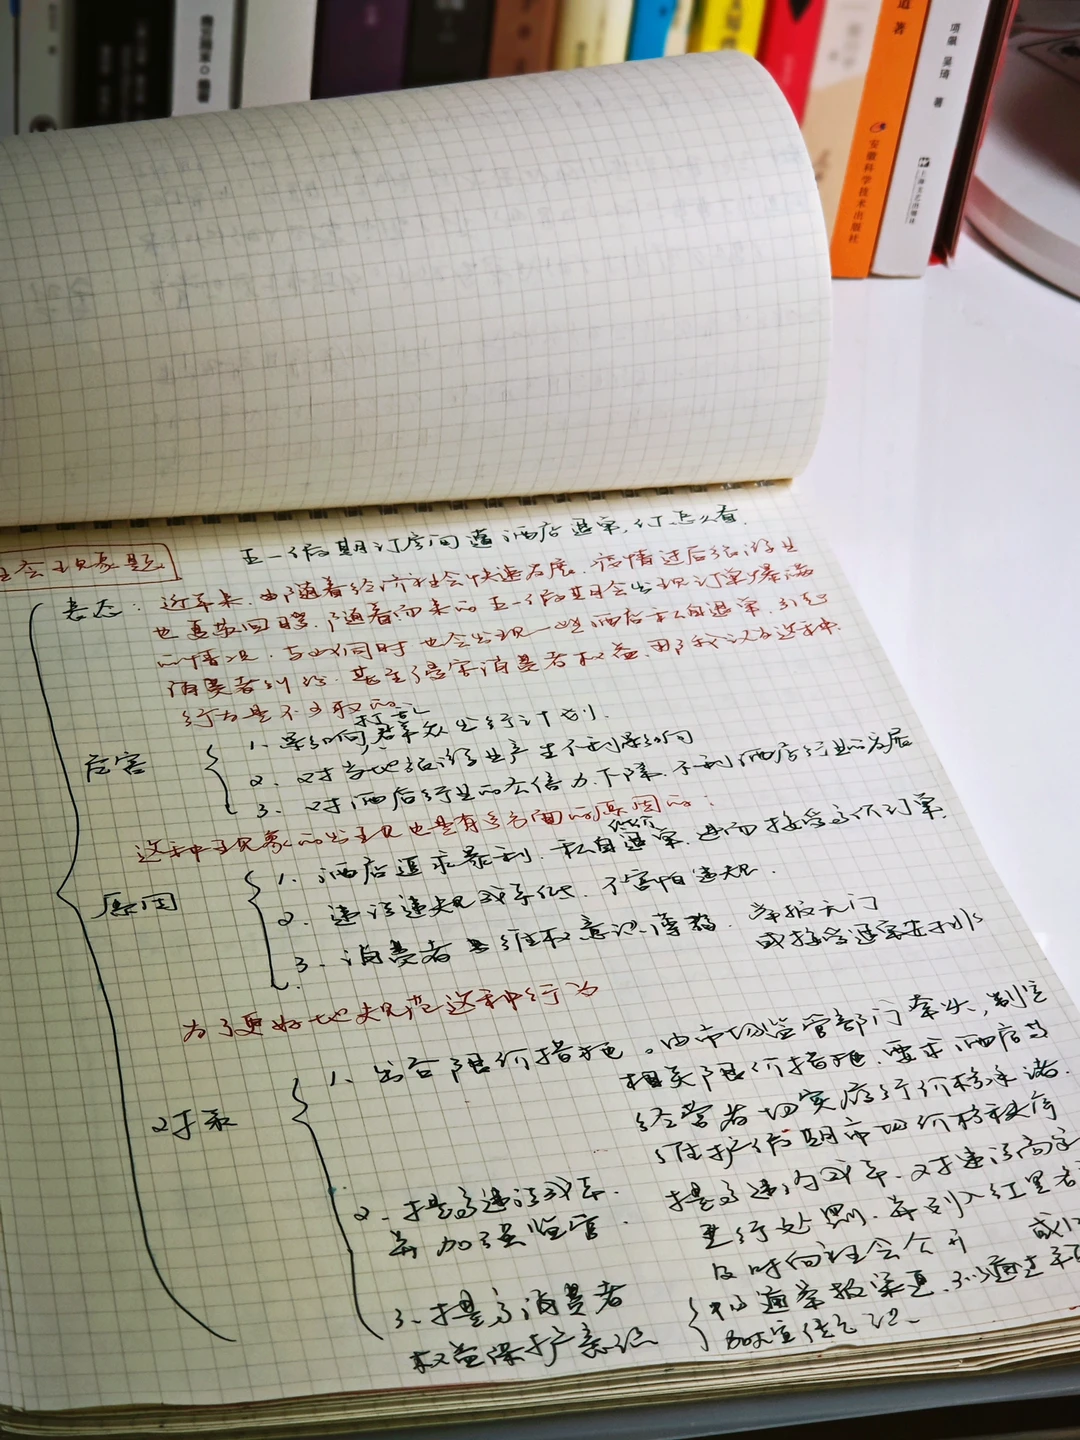 著
项飙 吴琦 著
安徽科学技术出版社
上海文艺出版社
社会现象题
五一假期订房间遭酒店退单,你怎么看.
表态:近年来,由随着经济社会快速发展,疫情过后旅游业
也逐渐回暖,随着而来的五一假期会出现订单爆满
的情况,与此同时也会出现一些酒店私自退单,引起
消费者纠纷,甚至侵害消费者权益,那我认为这种
行为是不可取的
打乱
危害
1. 影响群众出行计划.
2. 对当地旅游业产生不利影响
3. 对酒店行业的公信力下降,不利酒店行业的发展
这种现象的出现也是有多方面的原因的:
低价
原因
1. 酒店追求暴利,私自退单,进而接受高价订单.
2. 违法违规成本低,不害怕违规.
3. 消费者维权意识薄弱,举报无门
或接受退单
为了更好地规范这种行为
对策
1、出台限价措施。由市场监管部门牵头,制定
相关限价措施,要求酒店等
经营者切实履行价格承诺.
维护假期市场价格秩序
2、提高违法成本, 提高违约成本,对违法商家
并加强监管. 进行处罚,并列入红黑名
及时向社会公开
3、提高消费者 畅通举报渠道,
权益保护意识 宣传